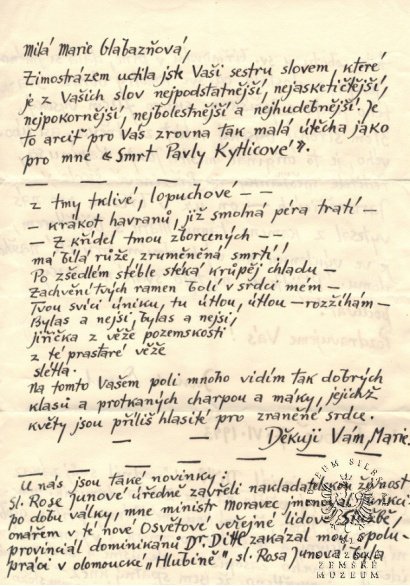 Milá Marie Glabazňová,
Zimostrázem uctila jste Vaši sestru slovem, které
je z Vašich slov nejpodstatnější, nejasketičtější,
nejpokornější, nejbolestnější a nejhudebnější. Je
to arciť pro Vás zrovna tak malá útěcha jako
pro mne « Smrt Pavly Kytlicové ».
z tmy tklivé, lopuchové — —
— krákot havranů, již smolná péra tratí —
— Z křídel tmou zborcených — —
má bílá růže, zruměněná smrtí!
Po zšedlém stéble stéká krůpěj chladu —
Zachvění tvých ramen bolí v srdci mém —
Tvou svíci úniku, tu útlou, útlou — rozžíhám —
Bylas a nejsi, bylas a nejsi,
jiřička z věže pozemskosti
z té prastaré věže
slétla.
Na tomto Vašem poli mnoho vidím tak dobrých
klasů a protkaných charpou a máky, jejichž
květy jsou příliš hlasité pro zraněné srdce.
Děkuji Vám, Marie.
U nás jsou také novinky:
sl. Rose Junové úředně zavřeli nakladatelskou živnost
po dobu války, mne ministr Moravec jmenoval funkci-
onářem v té nové Osvětové veřejné lidové Službě,
provinciál dominikánů Dr. Dittl zakázal mou spolu-
práci v olomoucké „Hlubině", sl. Rosa Junová byla
MUZEUM
ZEMSKÉ
MUZEUM